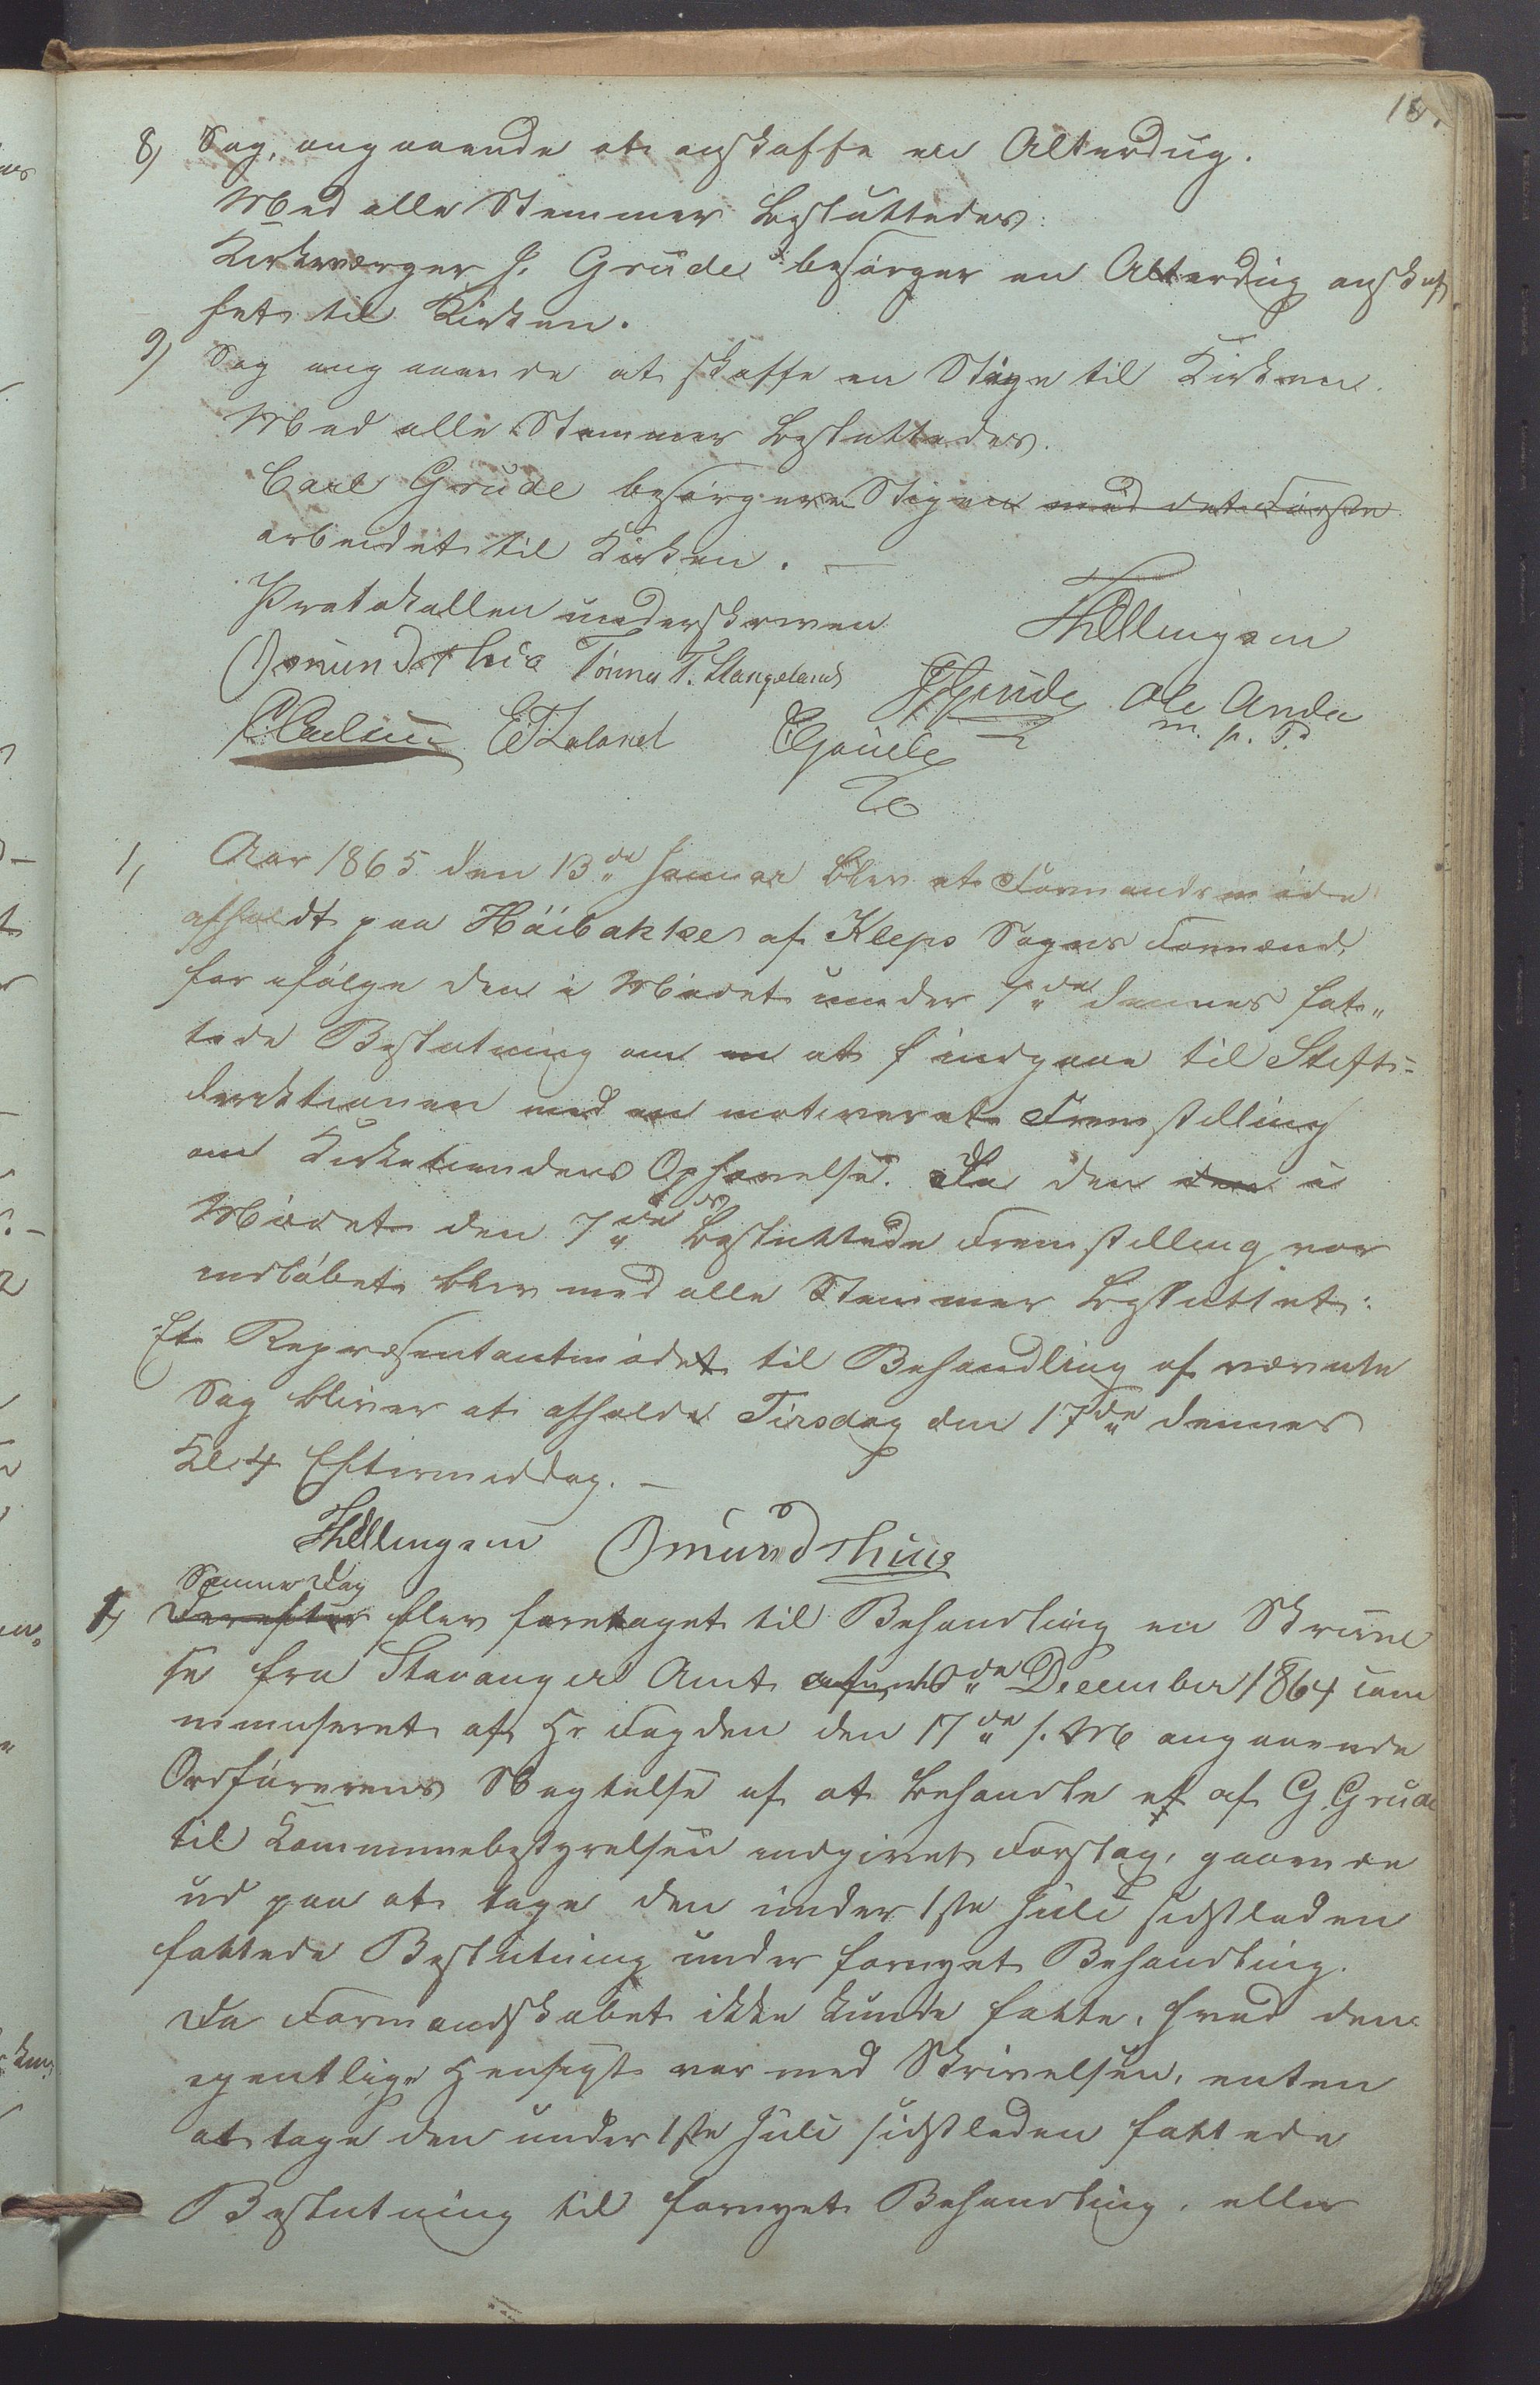 8) Sag, angaaende at anskaffe en Alterdug.
Med alle Stemmer besluttedes:
Kirkeværger J. Grude besørger en Alterdug anskaf
fet til Kirken.
9) Sag angaaende at skaffe en Stige til Kirken.
Med alle Stemmer besluttedes.
Carl Grude besørger Stigen med det Første
arbeidet til Kirken. —
Protokollen underskreven
Omund Thu Tønnes T. Stangeland JGrude Ole Anda
m. p. P.
ETLaland CGrude
1, Aar 1865 den 13de Januar blev et Formandsmøde
afholdt paa Höibakke af Kleps Sogns Formænd,
for ifølge den i Mødet under 7de dennes fat„
tede Beslutning om en at indgaae til Stifts-
direktionen med en motiveret Fremstilling
om Kirketiendens Ophævelse. Da den den i
Mødet den 7de ds besluttede Fremstilling var
indløbet blev med alle Stemmer besluttet:
Et Repræsentantmødet til Behandling af nævnte
Sag bliver at afholde Tirsdag den 17de dennes
Kl. 4 Eftermiddag. —
Omund Thu
Samme Dag
1, Derefter blev foretaget til Behandling en Skrivel
se fra Stavanger Amt af 10de December 1864 com
muniseret af Hr Fogden den 17de s. M angaaende
Ordførerens Vægtelse af at behandle et af G Grude
til Kommunebestyrelsen indgivet Forslag, gaaende
ud paa at tage den under 1ste Juli sidstleden
fattede Beslutning under fornyet Behandling.
Da Formandskabet ikke kunde fatte, hvad den
egentlige Hensigt var med Skrivelsen, enten
at tage den under 1ste Juli sidstleden fattede
Beslutning til fornyet Behandling, eller